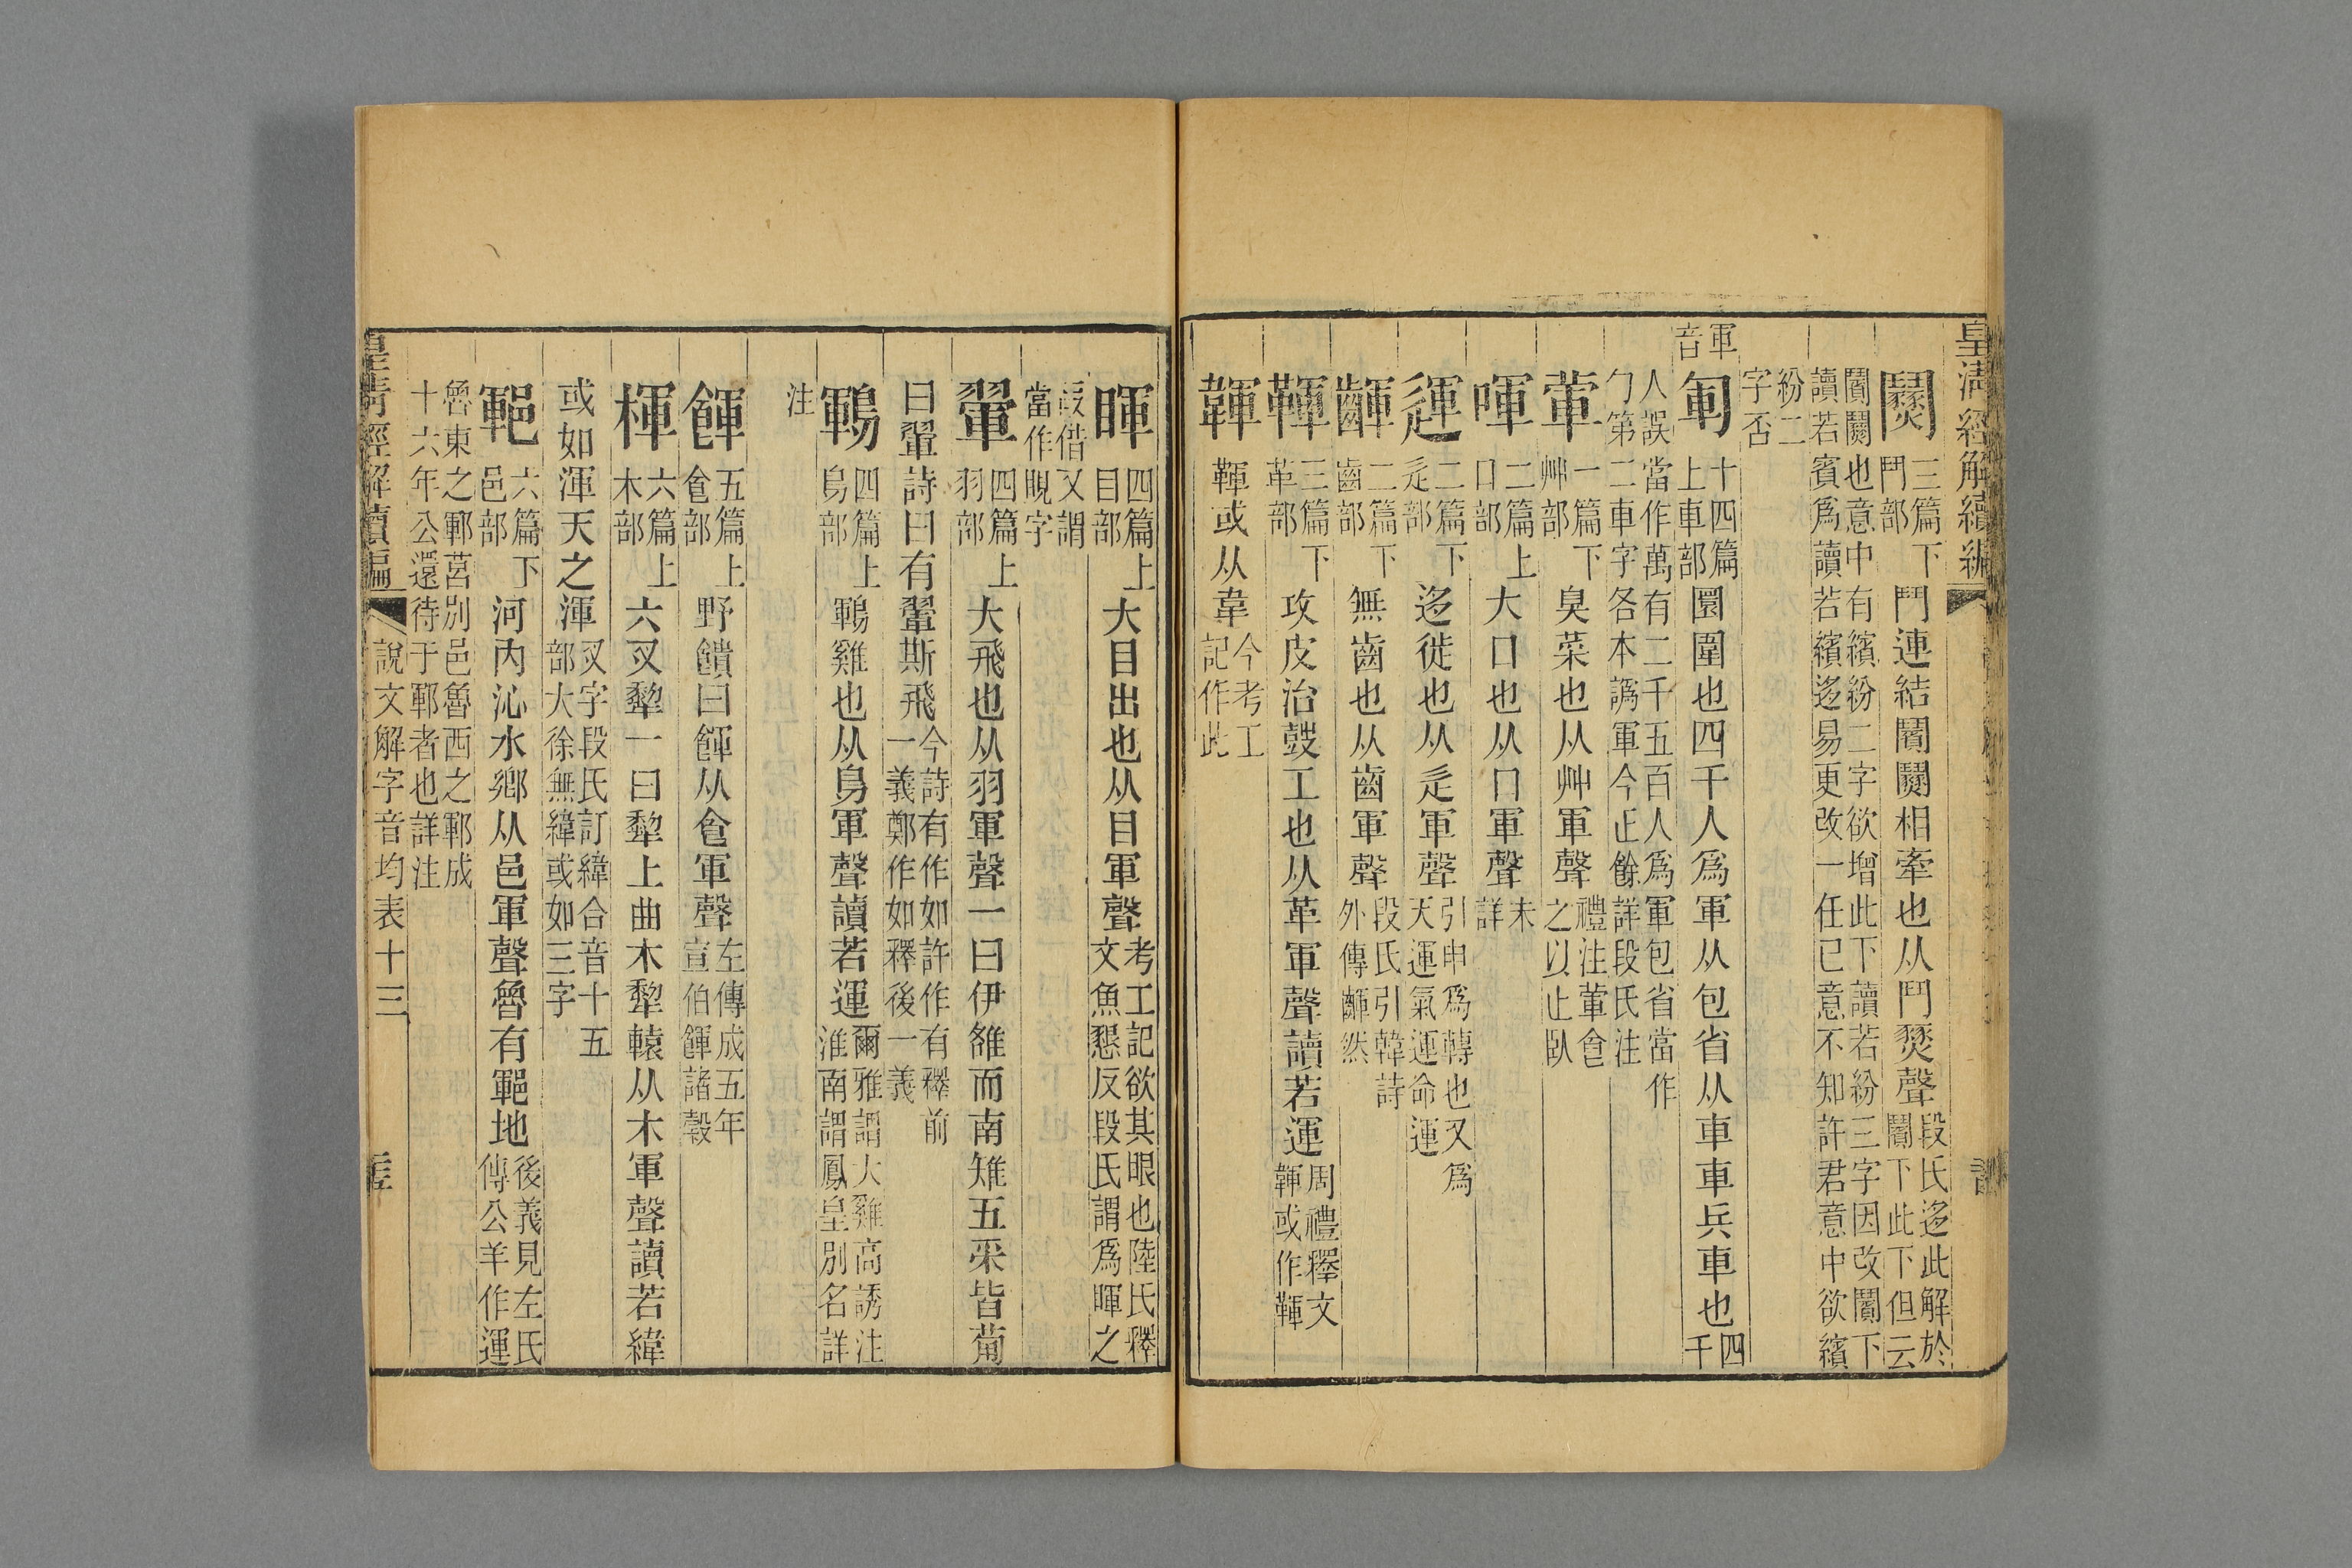 皇淸經解續編
䦧三篇下鬥部鬥連結䦨䦧相牽也从鬥燹聲段氏迻此解於䦨下此下但云
䦨䦧也意中有繽紛二字欲增此下讀若紛三字因改䦨下讀若賓爲讀若繽迻易更改一任已意不知許君意中欲繽
紛二字否
軍音
軍十四篇上車部圜圍也四千人爲軍从包省从車車兵車也四千
人誤當作萬有二千五百人爲軍包省當作勹第二車字各本譌軍今正餘詳段氏注
葷一篇下艸部臭菜也从艸軍聲禮注葷𩙿之以止臥
喗二篇上口部大口也从口軍聲未詳
運二篇下辵部迻徙也从辵軍聲引申爲轉也又爲天運氣運命運
齳二篇下齒部無齒也从齒軍聲段氏引韓詩外傳齳然
鞾三篇下革部攻皮治鼓工也从革軍聲讀若運周禮釋文鞾或作鞾
韗鞾或从韋今考工記作此
暉四篇上目部大目出也从目軍聲考工記欲其眼也陸氏釋文魚懇反段氏謂爲暉之
叚借又謂當作睍字
翬四篇上羽部大飛也从羽軍聲一曰伊雒而南雉五采皆葡
曰翬詩曰有翬斯飛今詩有作如許作有釋前一義鄭作如釋後一義
鶤四篇上鳥部鶤雞也从鳥軍聲讀若運爾雅謂大雞高誘注淮南謂鳳皇別名詳
注
餫五篇上𩙿部野饋曰餫从𩙿軍聲左傳成五年宣伯餫諸穀
楎六篇上木部六叉犂一曰犂上曲木犂轅从木軍聲讀若緯
或如渾天之渾叉字段氏訂緯合音十五部大徐無緯或如三字
鄆六篇下邑部河內沁水鄉从邑軍聲魯有鄆地後義見左氏傳公羊作運
魯東之鄆莒別邑魯西之鄆成十六年公還待于鄆者也詳注
皇清經解續編
說文解字音均表十三